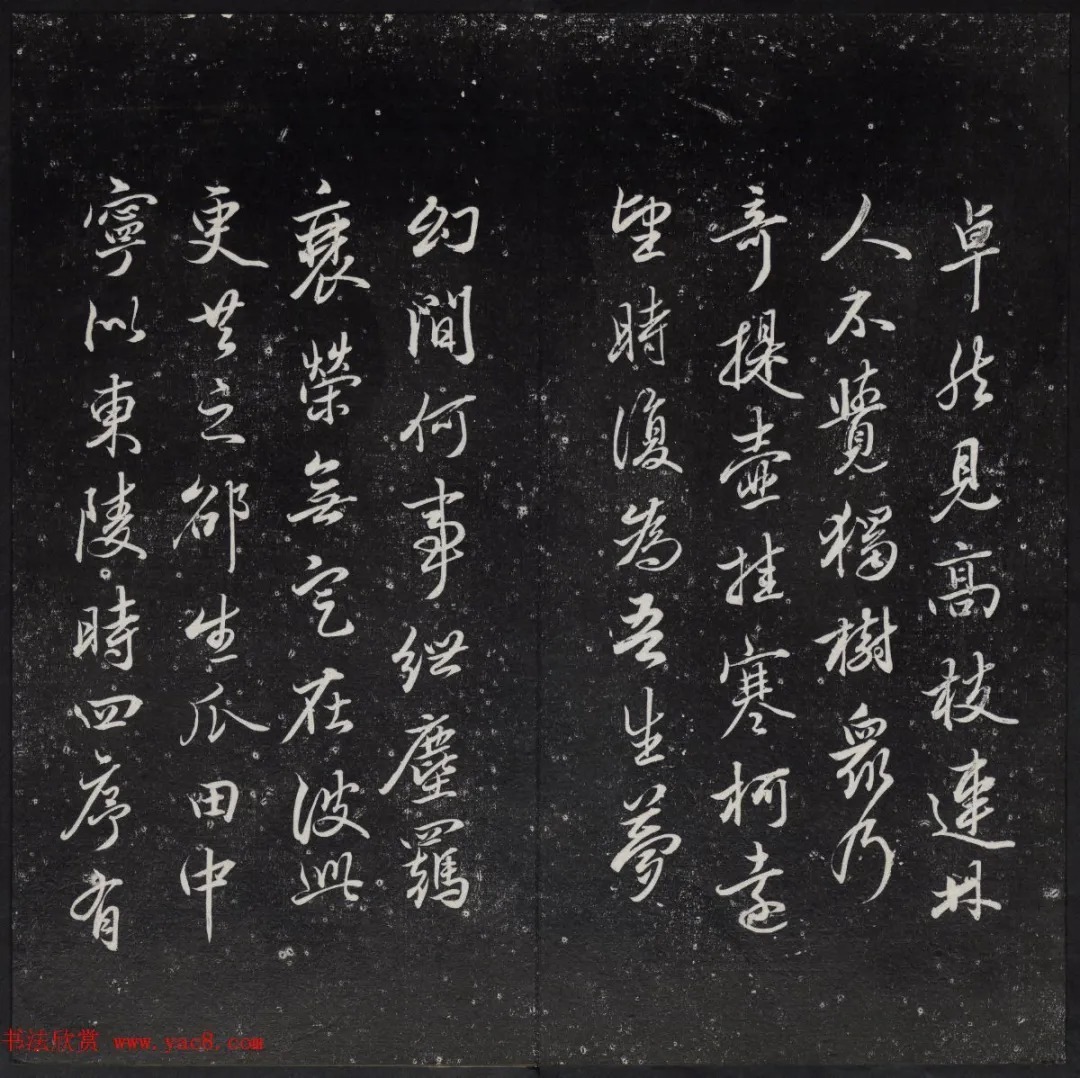 卓然見高枝連林
人不覺獨樹衆乃
奇提壺挂寒柯遠
望時復為吾生夢
幻間何事紲塵羈
衰榮無定在彼此
更共之邵生瓜田中
寧似東陵時四序有
书法欣赏 www.yac8.com